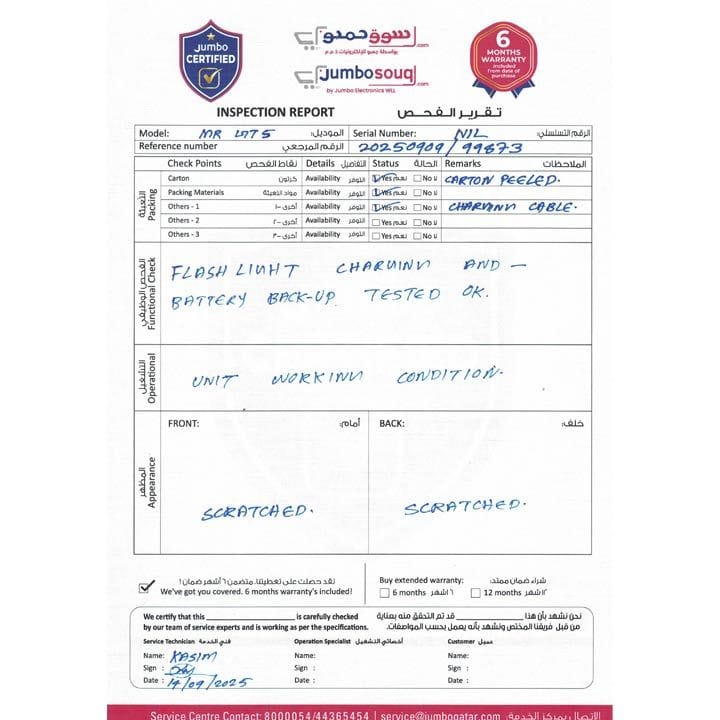 Jumbo
CERTIFIED
سوق جمبو.com
بواسطة جمبو للإلكترونيات ذ.م.م
jumbosouq.com
by Jumbo Electronics WLL
6
MONTHS
WARRANTY
included
from date of
purchase
INSPECTION REPORT تقرير الفحص
Model: الموديل: Serial Number: NIL الرقم التسلسلي:
Reference number الرقم المرجعي 20250909/99873
Check Points نقاط الفحص Details التفاصيل Status الحالة Remarks الملاحظات
التعبئة Packing
Carton كرتون Availability التوفر Yes نعم No لا CARTON PEELED.
Packing Materials مواد التعبئة Availability التوفر Yes نعم No لا
Others - 1 أخرى -١ Availability التوفر Yes نعم No لا CHARGING CABLE.
Others - 2 أخرى -٢ Availability التوفر Yes نعم No لا
Others - 3 أخرى -٣ Availability التوفر Yes نعم No لا
الفحص الوظيفي Functional Check
FLASH LIGHT CHARGING AND –
BATTERY BACK-UP TESTED OK.
التشغيل Operational
UNIT WORKING CONDITION.
المظهر Appearance
FRONT: أمام: BACK: خلف:
SCRATCHED. SCRATCHED.
لقد حصلت على تغطيتنا. متضمن ٦ أشهر ضمان!
We've got you covered. 6 months warranty's included!
Buy extended warranty: شراء ضمان ممتد:
6 months ٦ اشهر 12 months ١٢ شهر
We certify that this is carefully checked
by our team of service experts and is working as per the specifications.
نحن نشهد بأن هذا قد تم التحقق منه بعناية
من قبل فريقنا المختص ونشهد بأنه يعمل بحسب المواصفات.
Service Technician فني الخدمة Operation Specialist أخصائي التشغيل Customer عميل
Name: KASIM Name: Name:
Sign : Sign : Sign :
Date : 14/09/2025 Date : Date :
Service Centre Contact: 8000054/44365454 | service@jumboqatar.com الاتصال بمركز الخدمة: